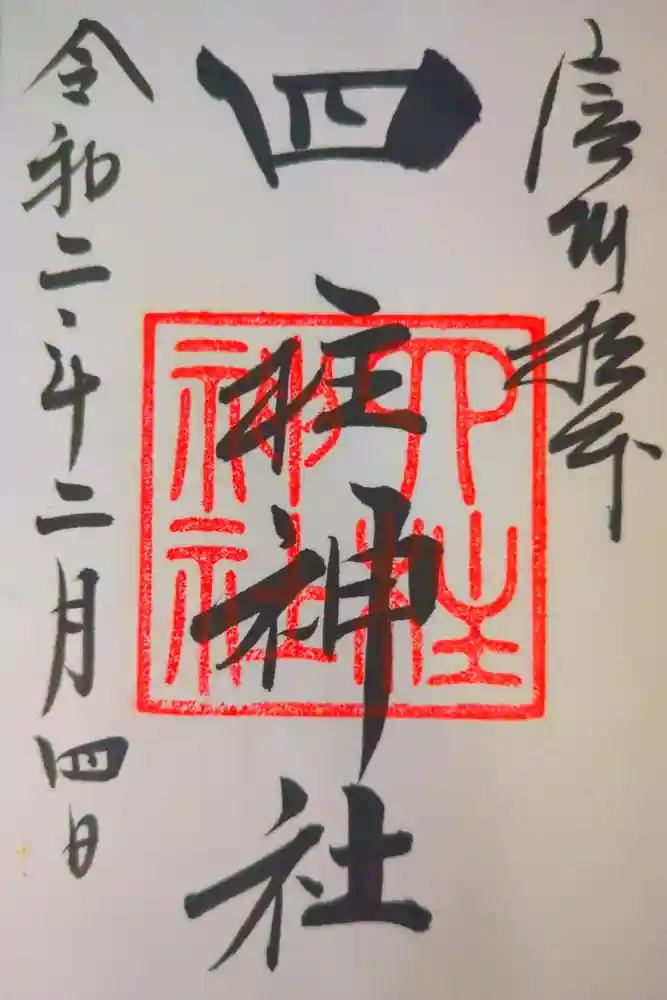 信州松本
四柱神社
四柱神社
令和二年十二月四日